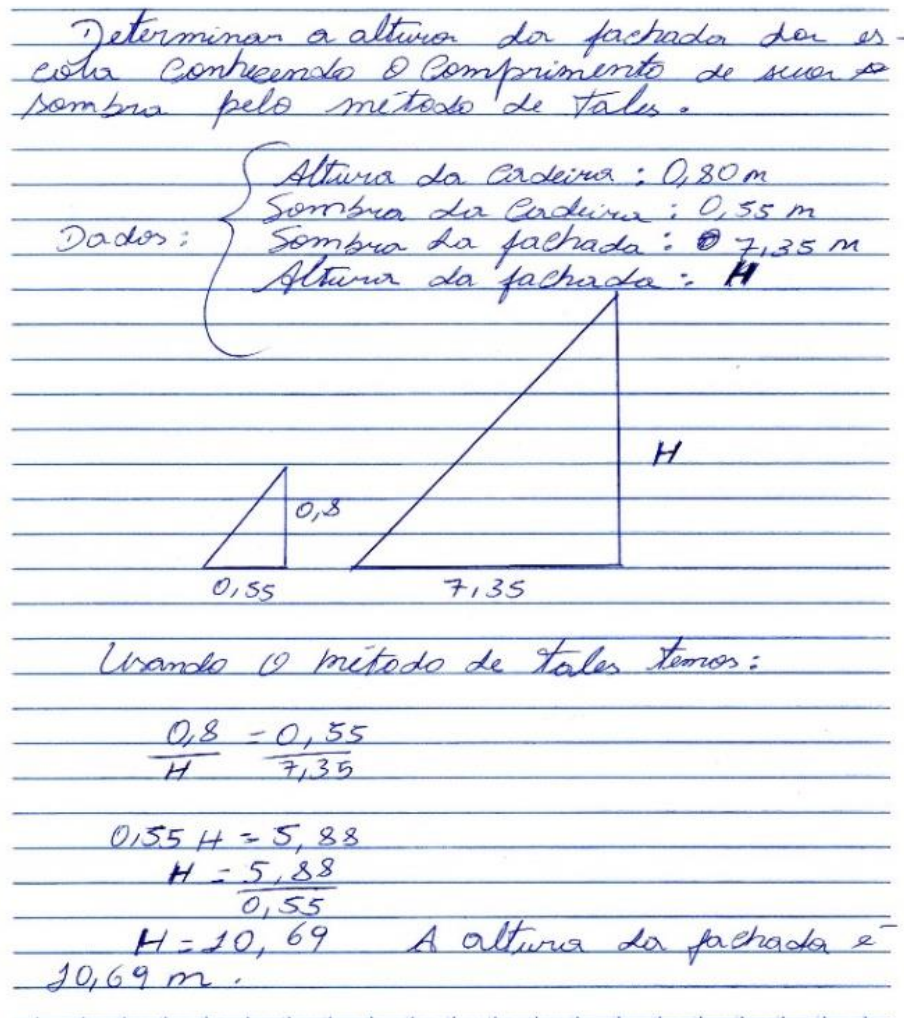 Determinar a altura da fachada da es-
cola conhecendo o comprimento de sua
sombra pelo método de Tales.
Dados:
Altura da cadeira: 0,80 m
Sombra da cadeira: 0,55 m
Sombra da fachada: 7,35 m
Altura da fachada: H
H
0,8
0,55 7,35
Usando o método de tales temos:
0,8 = 0,55
H 7,35
0,55 H = 5,88
H = 5,88
0,55
H = 10,69 A altura da fachada é
10,69 m.